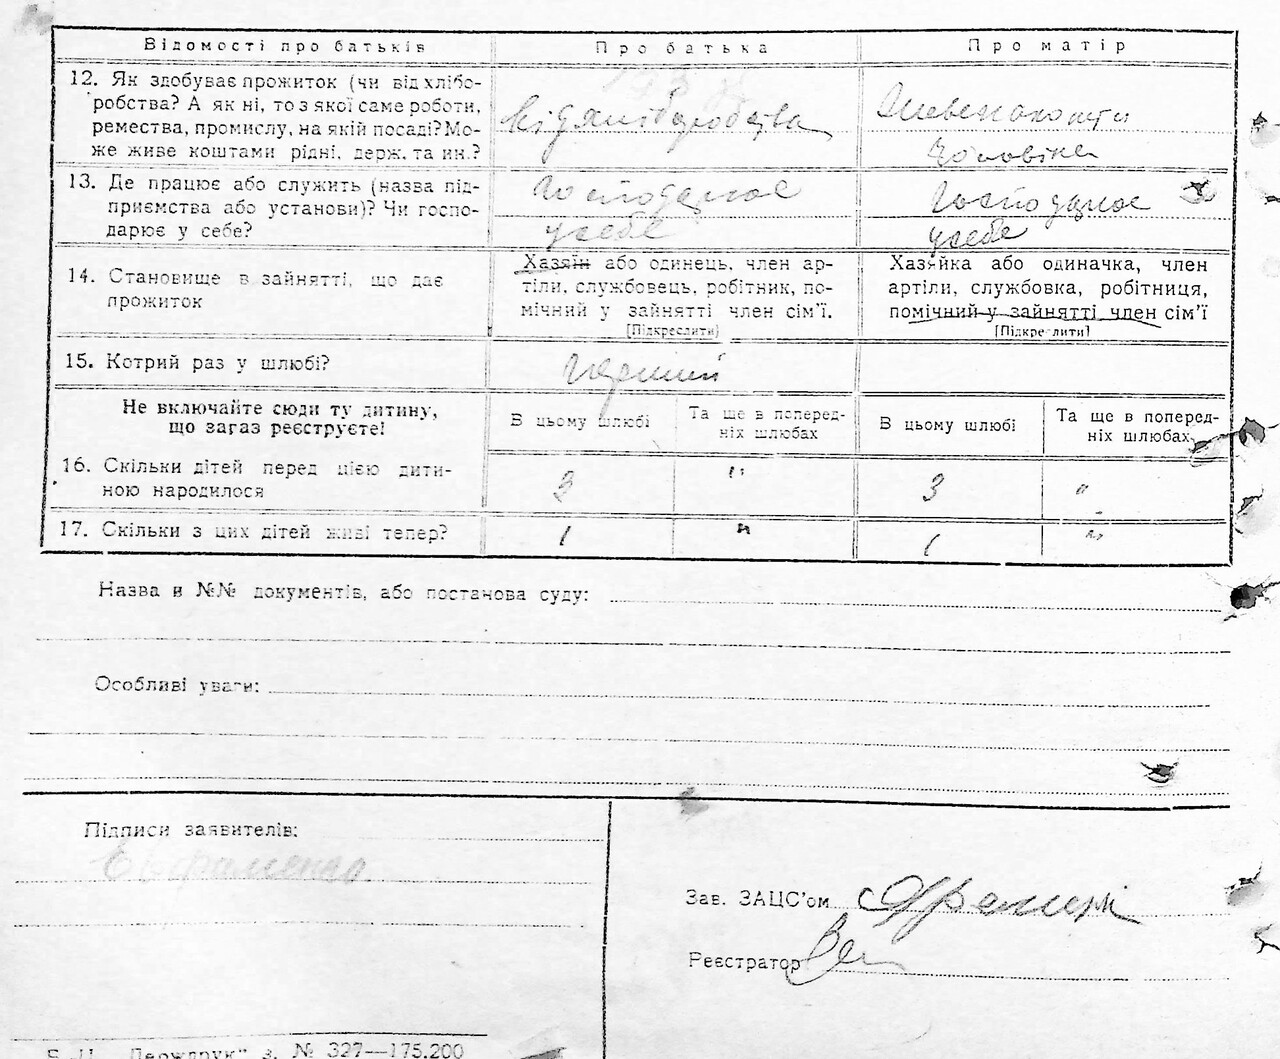 Відомості про батьків
Про батька
Про матір
12. Як здобуває прожиток (чи від хлібо-
робства? А як ні, то з якої саме роботи,
ремества, промислу, на якій посаді? Мо-
же живе коштами рідні, держ. та ин.?
від хліборобства
Живе на кошти
чоловіка
13. Де працює або служить (назва під-
приємства або установи)? Чи госпо-
дарює у себе?
Господарює
у себе
Господарює
у себе
14. Становище в зайнятті, що дає
прожиток
Хазяїн або одинець, член ар-
тілі, службовець, робітник, по-
мічний у зайнятті член сім'ї.
[Підкреслити]
Хазяйка або одиначка, член
артіли, службовка, робітниця,
помічний у зайнятті член сім'ї
[Підкреслити]
15. Котрий раз у шлюбі?
перший
Не включайте сюди ту дитину,
що загаз реєструєте!
В цьому шлюбі
Та ще в поперед-
ніх шлюбах
В цьому шлюбі
Та ще в поперед-
ніх шлюбах
16. Скільки дітей перед цією дити-
ною народилося
3
"
3
"
17. Скільки з цих дітей живі тепер?
1
"
1
"
Назва и №№ документів, або постанова суду:
Особливі уваги:
Підписи заявителів:
Зав. ЗАЦС'ом
Реєстратор
Держдрук" з. № 327—175.200